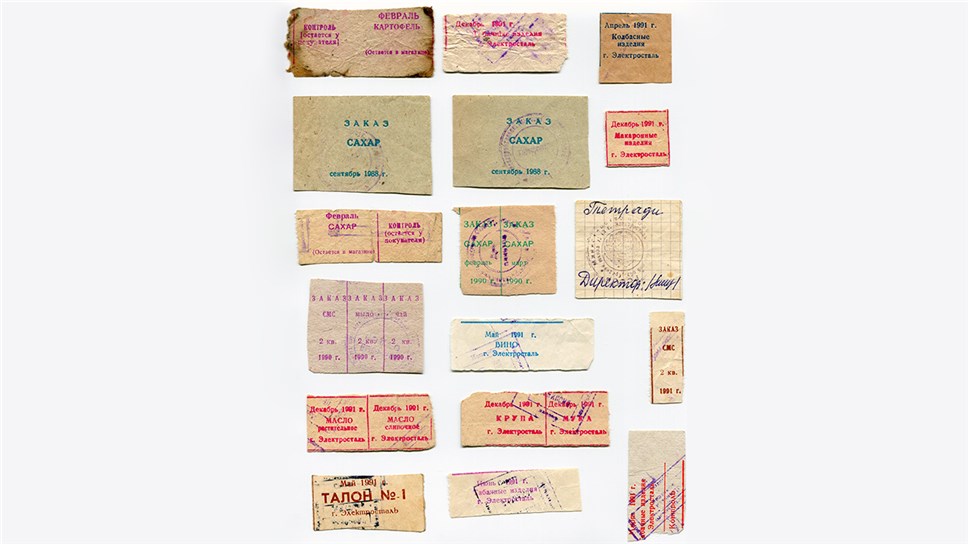 КОНТРОЛЬ
(остается у
покупателя)
ФЕВРАЛЬ
КАРТОФЕЛЬ
(Остается в магазине)
Декабрь 1991 г.
изделия
г. Электросталь
Апрель 1991 г.
Колбасные
изделия
г. Электросталь
ЗАКАЗ
САХАР
сентябрь 1988 г.
ЗАКАЗ
САХАР
сентябрь 1988 г.
Декабрь 1991 г.
Макаронные
изделия
г. Электросталь
Февраль
САХАР
(Остается в магазине)
КОНТРОЛЬ
(остается у
покупателя)
ЗАКАЗ
САХАР
февраль
1990 г.
ЗАКАЗ
САХАР
март
1990 г.
Тетради
Директор:
ЗАКАЗ
СМС
2 кв.
1990 г.
ЗАКАЗ
мыло
2 кв.
1990 г.
ЗАКАЗ
чай
2 кв.
1990 г.
Май 1991 г.
ВИНО
г. Электросталь
ЗАКАЗ
СМС
2 кв.
1991 г.
Декабрь 1991 г.
МАСЛО
растительное
г. Электросталь
Декабрь 1991 г.
МАСЛО
сливочное
г. Электросталь
Декабрь 1991 г.
КРУПА
г. Электросталь
Декабрь 1991 г.
МУКА
г. Электросталь
Май 1991 г.
ТАЛОН №1
г. Электросталь
1991 г.
изделия
г. Электросталь
1991 г.
изделия
Электросталь
Контроль